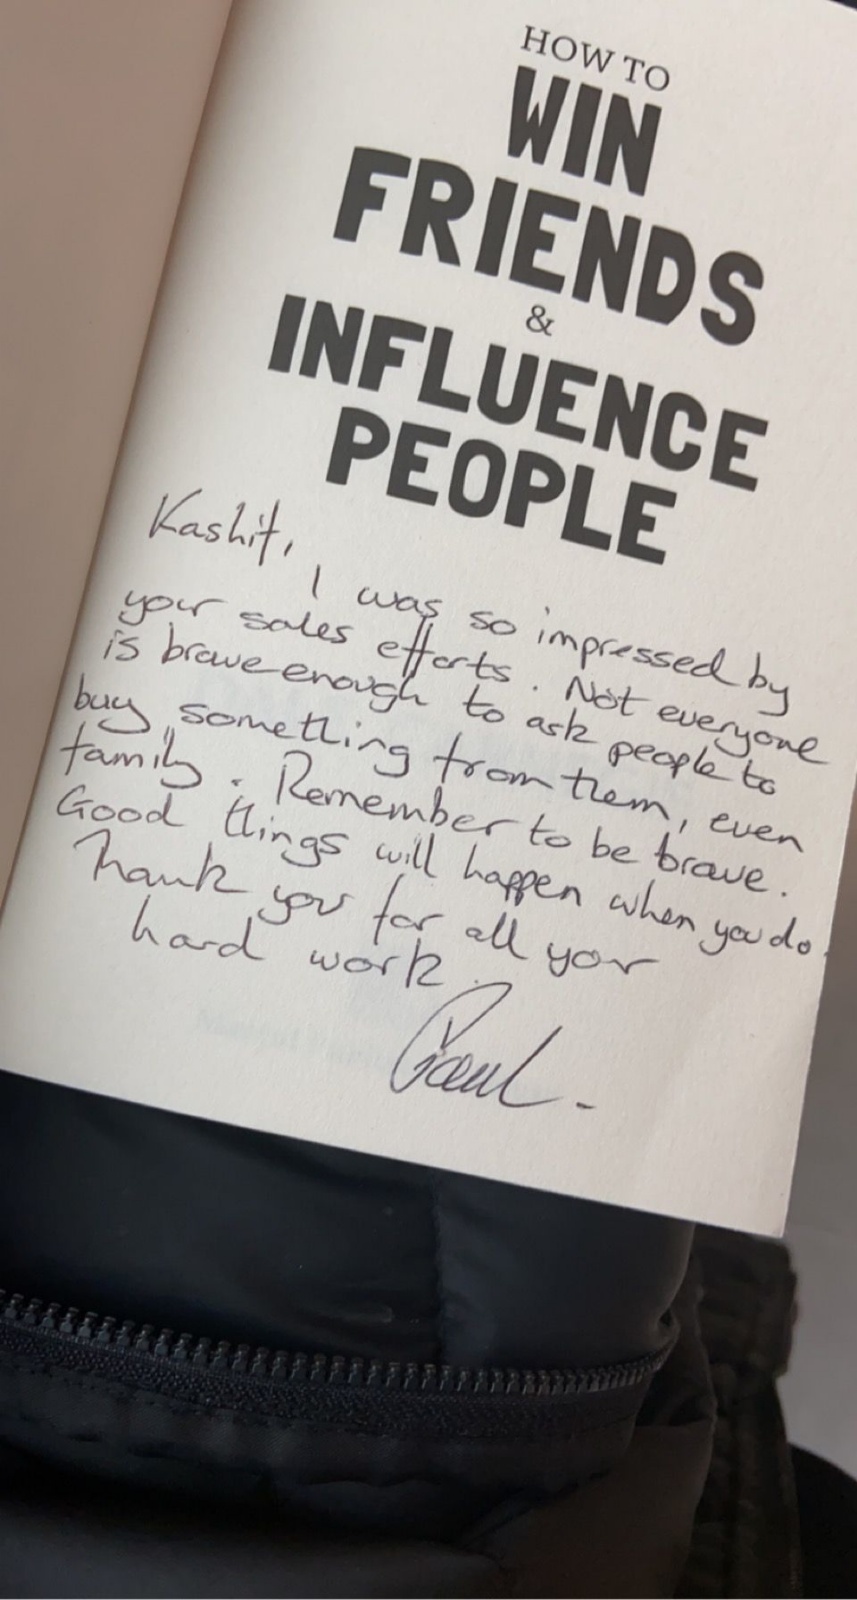 HOW TO
WIN
FRIENDS
&
INFLUENCE
PEOPLE
Kashif,
I was so impressed by
your sales efforts. Not everyone
is brave enough to ask people to
buy something from them, even
family. Remember to be brave.
Good things will happen when you do.
Thank you for all your
hard work.
Paul.